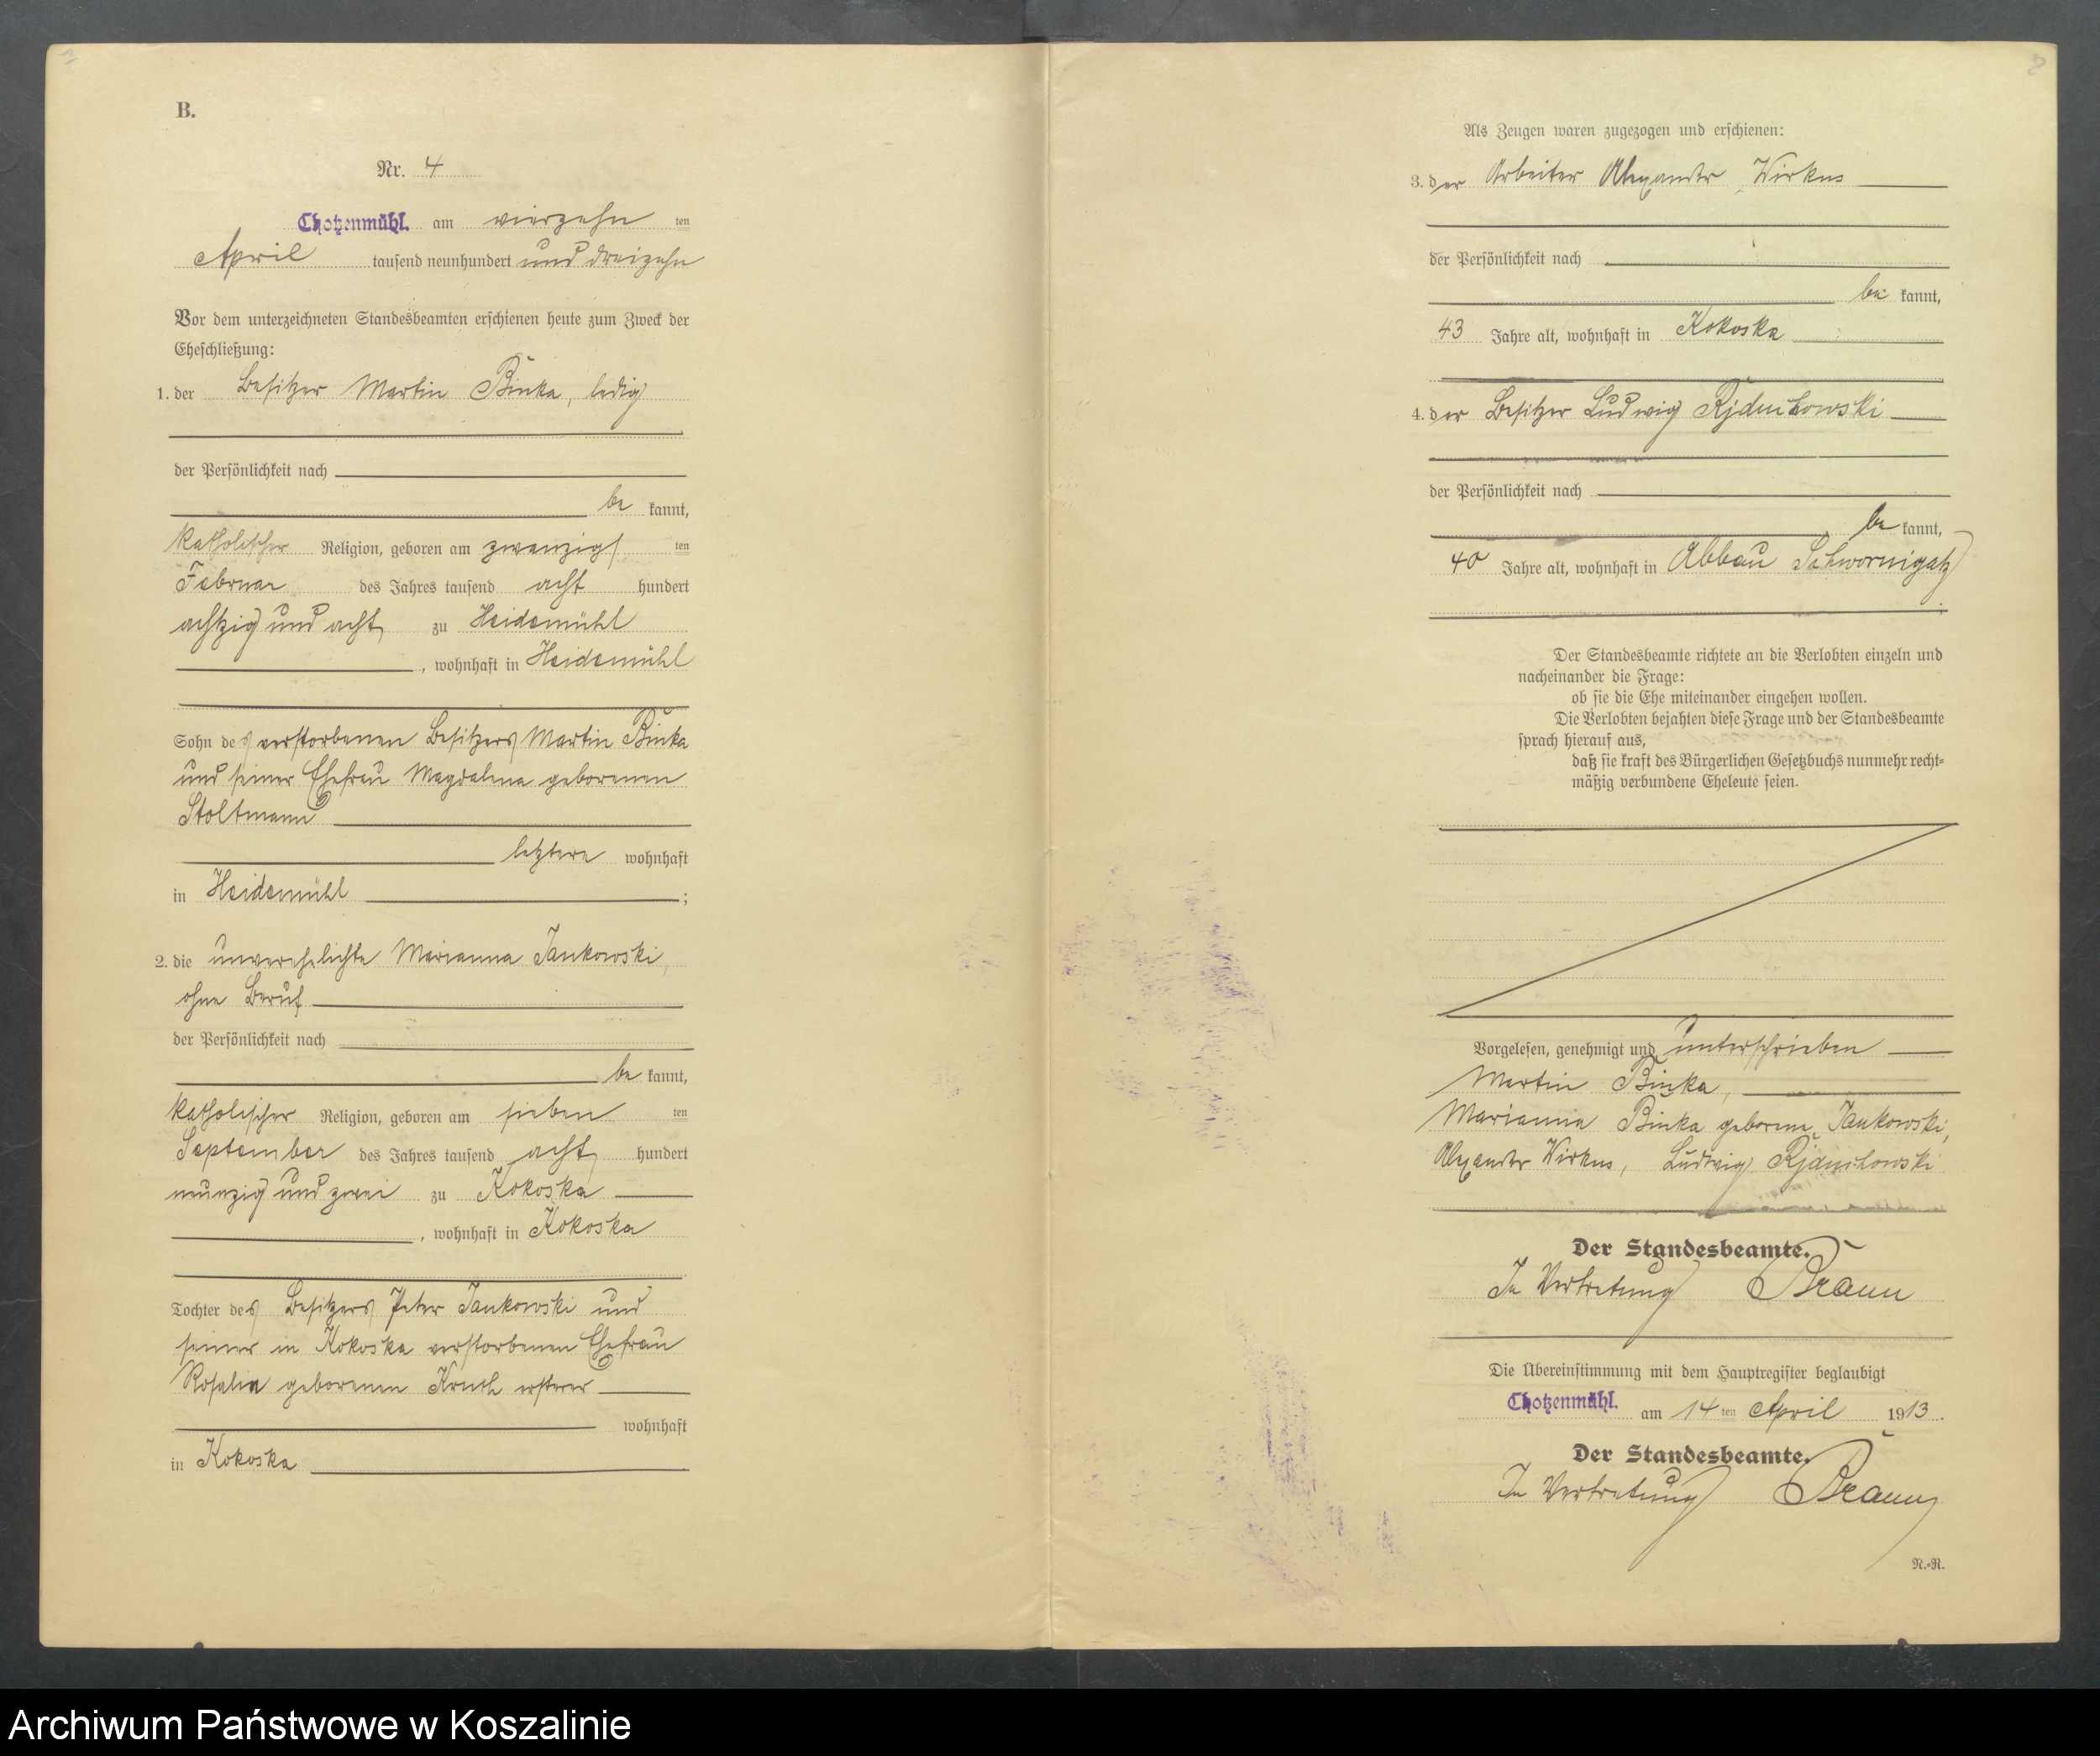 7
B.
Nr. 4
Chotzenmühl. am vierzehn ten
April tausend neunhundert und dreizehn
Vor dem unterzeichneten Standesbeamten erschienen heute zum Zweck der
Eheschließung:
1. der Besitzer Martin Binka, ledig
der Persönlichkeit nach
be kannt,
katholischer Religion, geboren am zwanzigs ten
Februar des Jahres tausend acht hundert
achtzig und acht zu Heidemühl
, wohnhaft in Heidemühl
Sohn des verstorbenen Besitzers Martin Binka
und seiner Ehefrau Magdalena geborenen
Stoltmann
letztere wohnhaft
in Heidemühl ;
2. die unverehelichte Marianna Jankowski,
ohne Beruf
der Persönlichkeit nach
be kannt,
katholischer Religion, geboren am sieben ten
September des Jahres tausend acht hundert
neunzig und zwei zu Kokoska
, wohnhaft in Kokoska
Tochter des Besitzers Peter Jankowski und
seiner in Kokoska verstorbenen Ehefrau
Rosalia geborenen ersterer
wohnhaft
in Kokoska
8
Als Zeugen waren zugezogen und erschienen:
3. der Arbeiter Alexander Wirkus
der Persönlichkeit nach
be kannt,
43 Jahre alt, wohnhaft in Kokoska
4. der Besitzer Ludwig
der Persönlichkeit nach
be kannt,
40 Jahre alt, wohnhaft in Abbau Schwornigatz
Der Standesbeamte richtete an die Verlobten einzeln und
nacheinander die Frage:
ob sie die Ehe miteinander eingehen wollen.
Die Verlobten bejahten diese Frage und der Standesbeamte
sprach hierauf aus,
daß sie kraft des Bürgerlichen Gesetzbuchs nunmehr recht-
mäßig verbundene Eheleute seien.
Vorgelesen, genehmigt und unterschrieben
Martin Binka,
Marianna Binka geborene Jankowski,
Alexander Wirkus, Ludwig
Der Standesbeamte.
In Vertretung Braun
Die Übereinstimmung mit dem Hauptregister beglaubigt
Chotzenmühl. am 14 ten April 1913.
Der Standesbeamte.
In Vertretung Braun
N.-R.
Archiwum Państwowe w Koszalinie